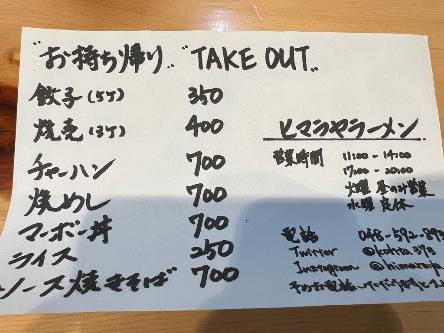 "お持ち帰り" "TAKE OUT"
餃子(5ケ) 350
焼売(3ケ) 400
チャーハン 700
焼めし 700
マーボー丼 700
ライス 250
ソース焼きそば 700
ヒマラヤラーメン
営業時間 11:00-14:00
17:00-20:00
火曜 昼のみ営業
水曜 定休
電話 048-592-893
Twitter @kohta393
Instagram @himaraya